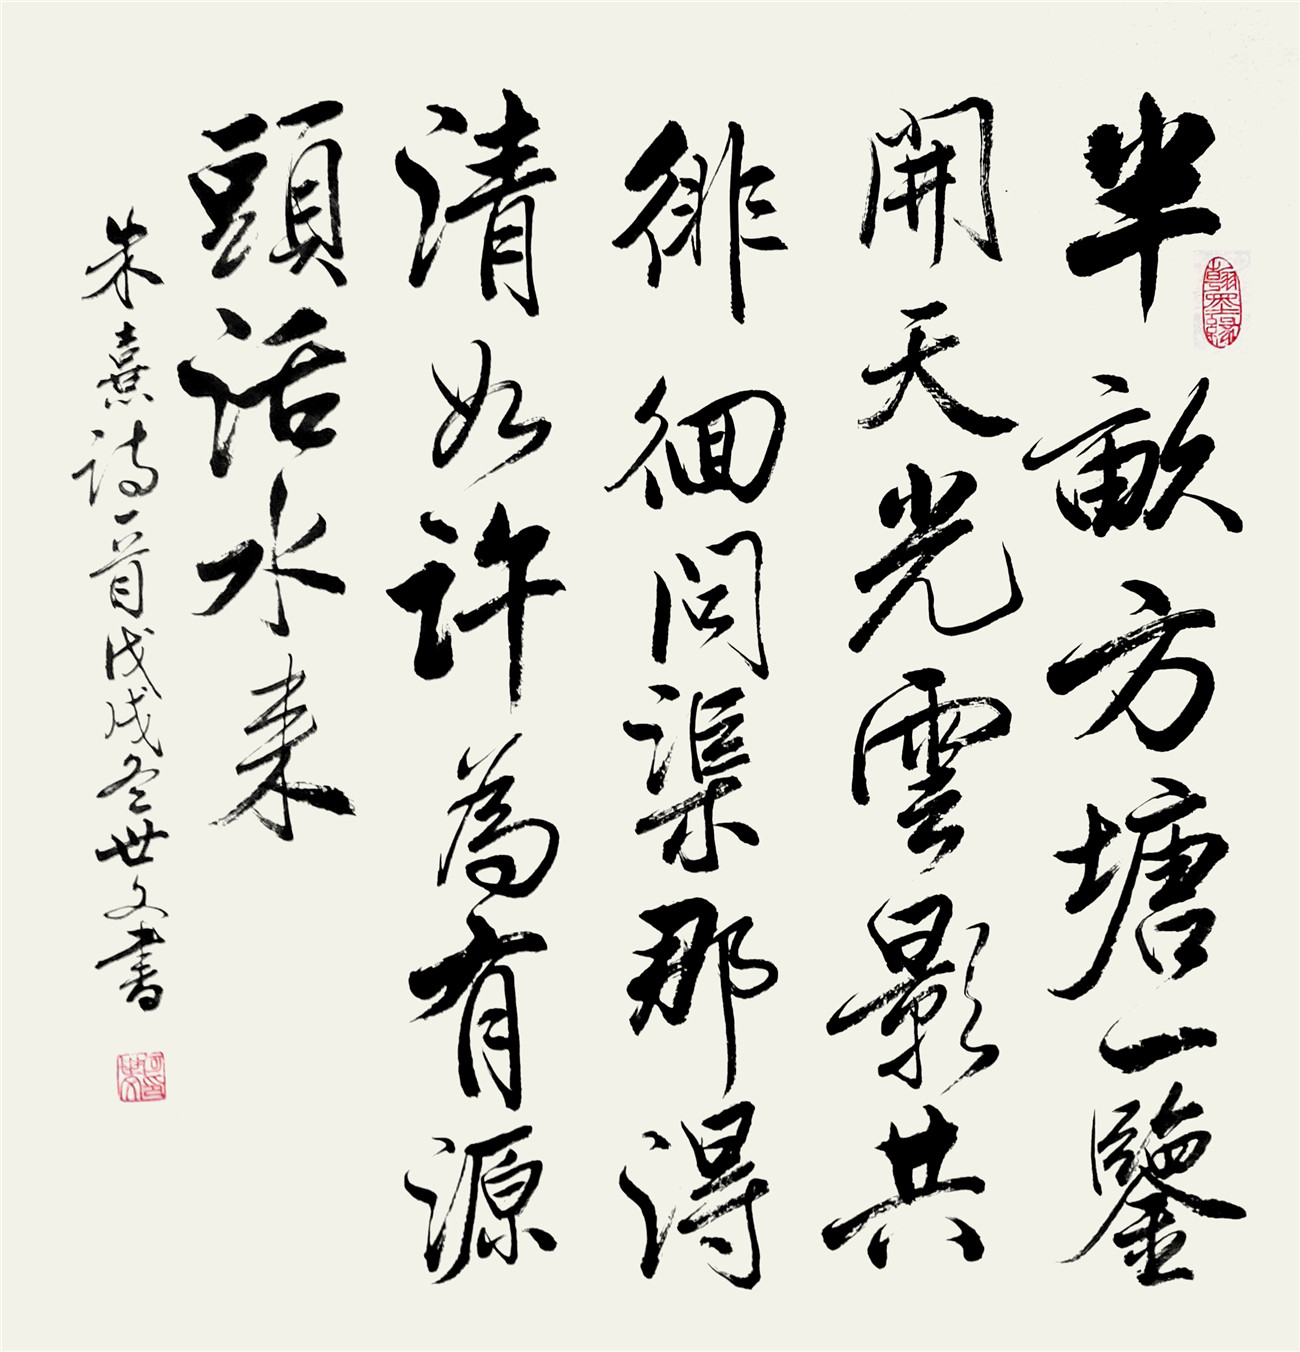 半畝方塘一鑒
開天光雲影共
徘徊問渠那得
清如許為有源
頭活水来
朱熹詩一首戊戌冬世文書
翰墨緣